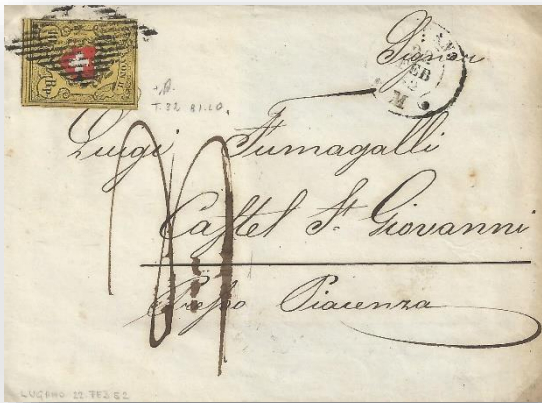 Signor
FEB
M
T.82
Luigi Fumagalli
Castel St. Giovanni
Presso Piacenza
LUGANO 22 FEB 52